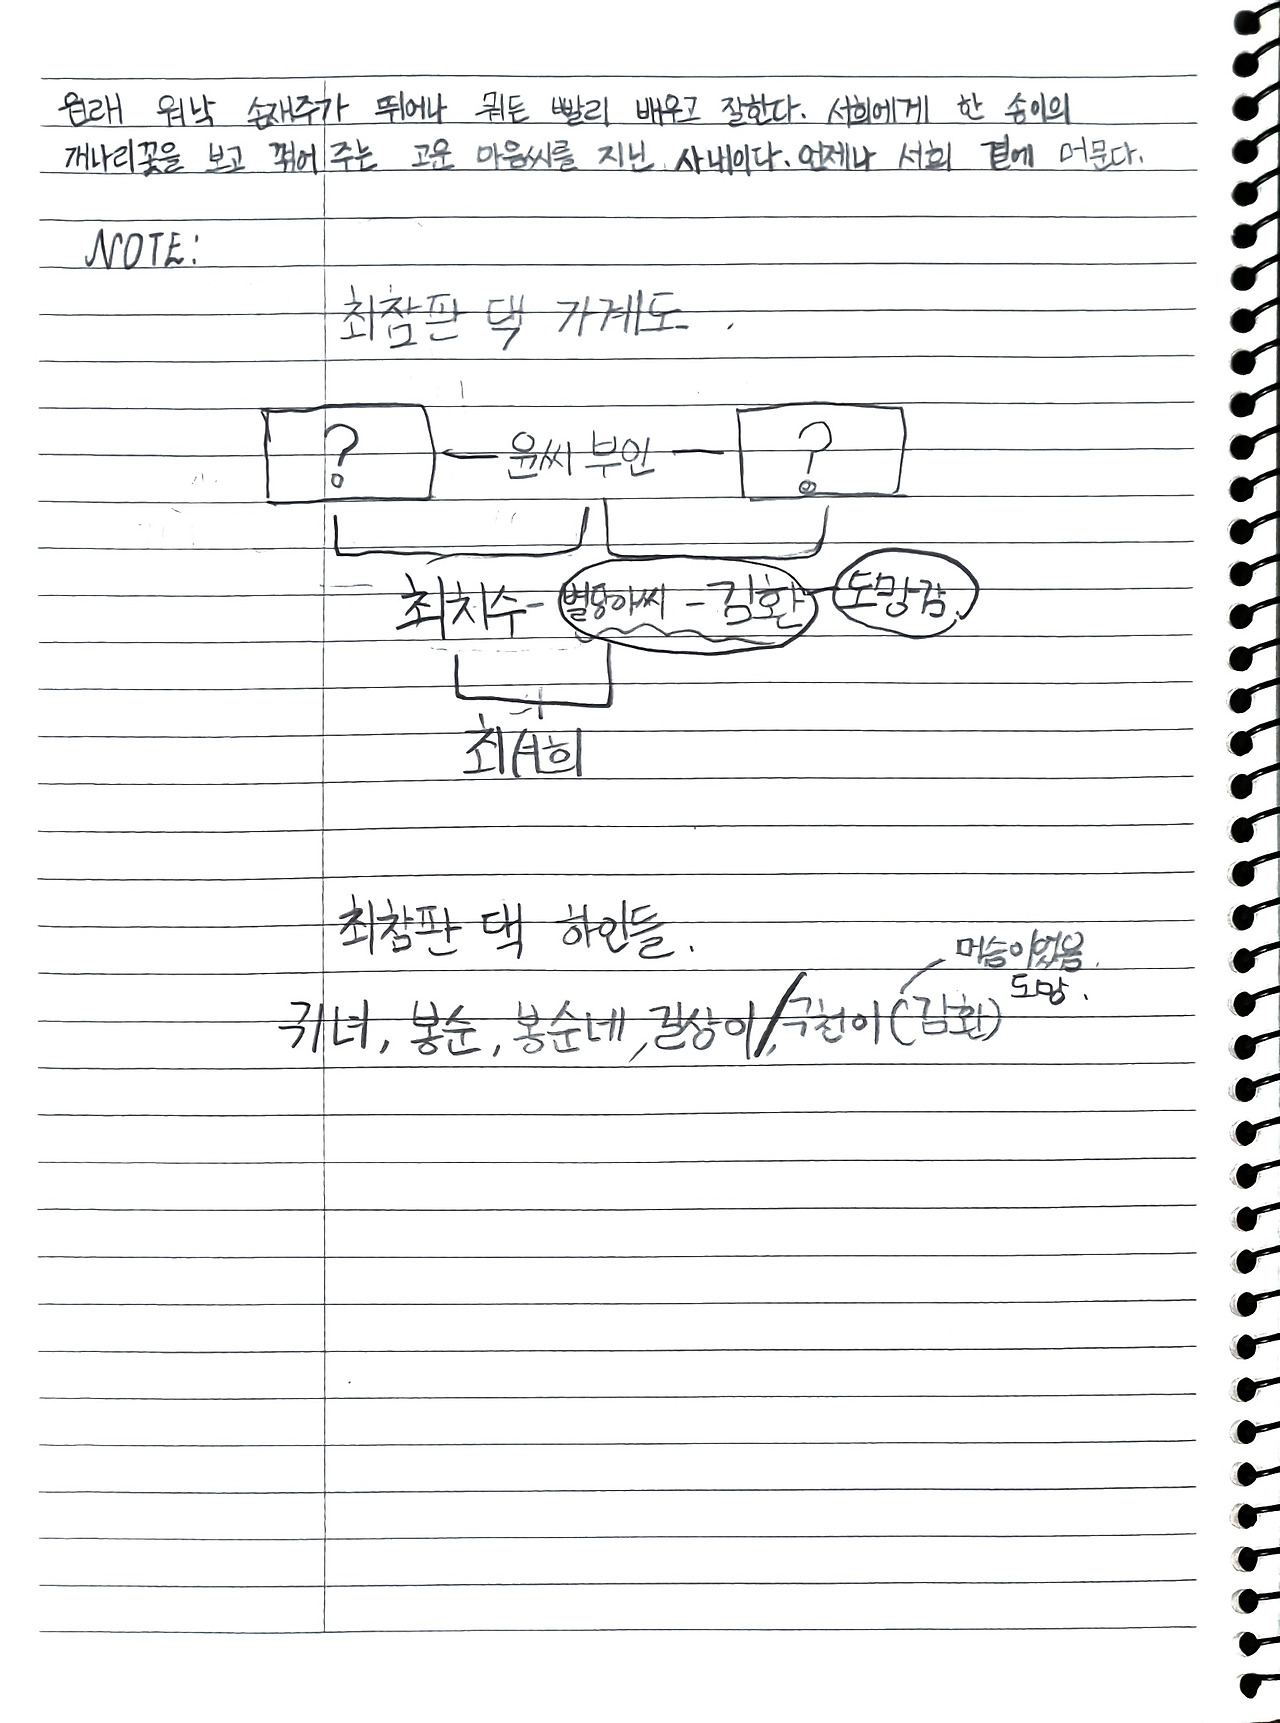 원래 워낙 손재주가 뛰어나 뭐든 빨리 배우고 잘한다. 서희에게 한 송이의
개나리꽃을 보고 꺾어 주는 고운 마음씨를 지닌 사내이다. 언제나 서희 곁에 머문다.
NOTE:
최참판 댁 가계도.
? ← 윤씨 부인 — ?
최치수 - 별당아씨 - 김환 - 도망감.
최서희
최참판 댁 하인들.
머슴이었음.
도망.
귀녀, 봉순, 봉순네, 길상이/구천이 (김환)